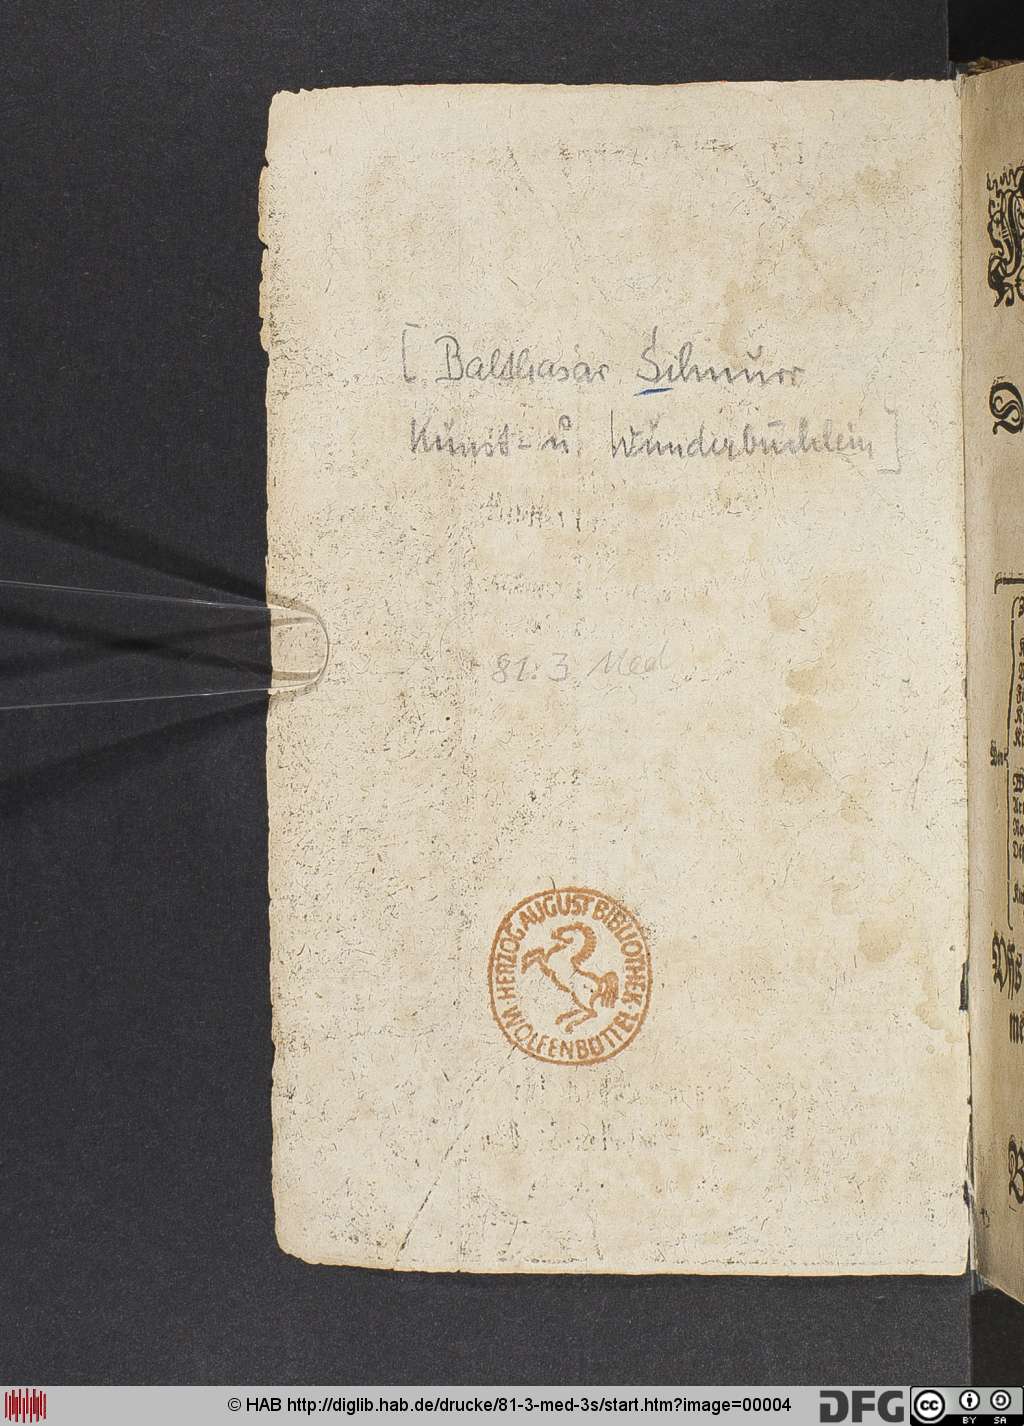 [ Balthasar Schnurr
Kunst- u. Wunderbüchlein ]
81. 3 Med
HERZOG AUGUST BIBLIOTHEK · WOLFENBÜTTEL ·
© HAB http://diglib.hab.de/drucke/81-3-med-3s/start.htm?image=00004
DFG
cc
BY SA